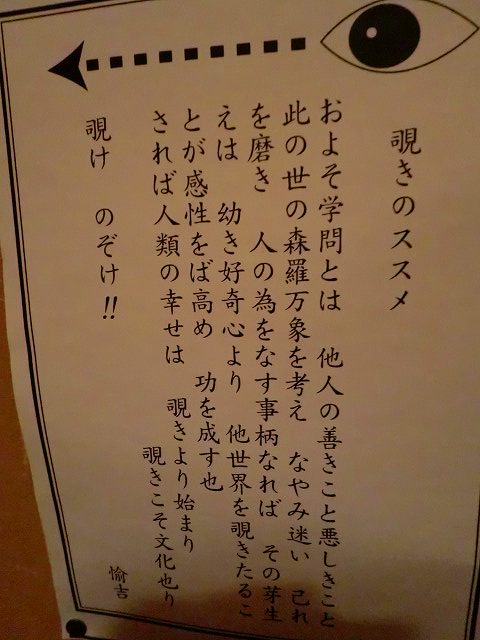 覗きのススメ
およそ学問とは　他人の善きこと悪しきこと
此の世の森羅万象を考え　なやみ迷い　己れ
を磨き　人の為をなす事柄なれば　その芽生
えは　幼き好奇心より　他世界を覗きたるこ
とが感性をば高め　功を成す也
されば人類の幸せは　覗きより始まり
覗きこそ文化也り
覗け　のぞけ!!
愉吉